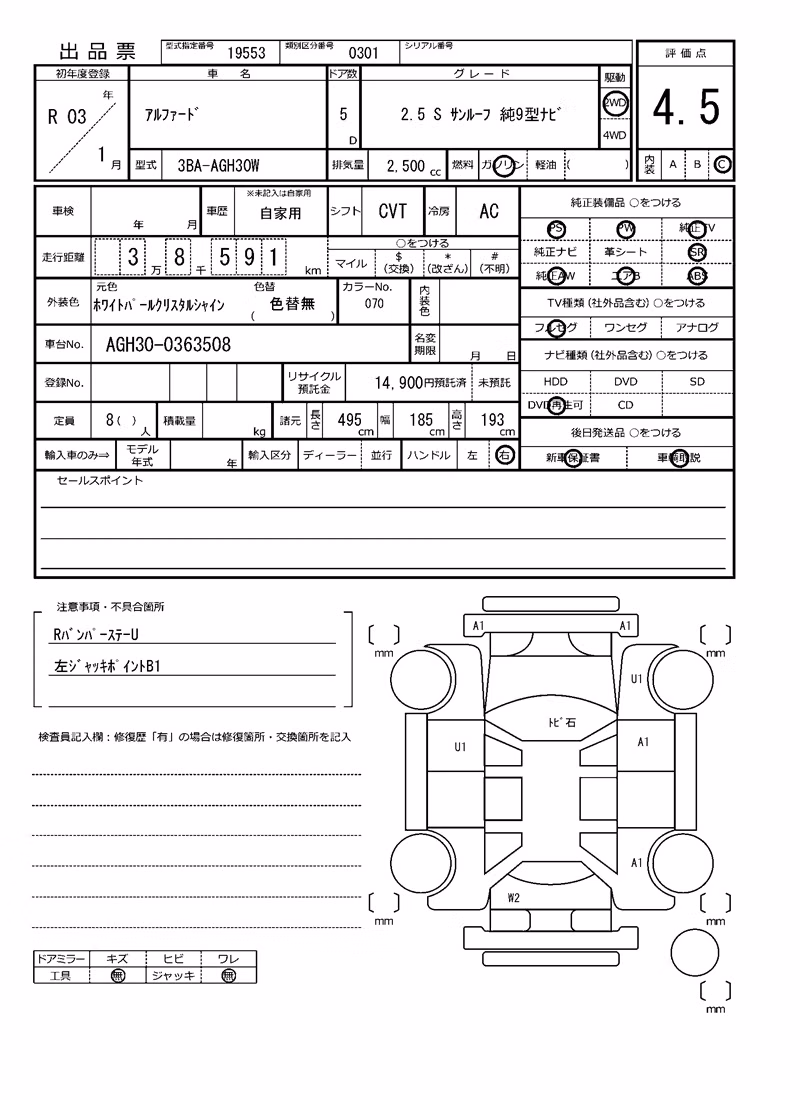 出品票 型式指定番号 19553 類別区分番号 0301 シリアル番号
評価点
4.5
内装 A B C
初年度登録 車名 ドア数 グレード 駆動
R 03 年 1 月 アルファード 5 D 2.5 S サンルーフ 純9型ナビ 2WD
4WD
型式 3BA-AGH30W 排気量 2,500 cc 燃料 ガソリン 軽油 ( )
車検 年 月 車歴 ※未記入は自家用
自家用 シフト CVT 冷房 AC
走行距離 3 万 8 千 5 9 1 km
○をつける
マイル $ (交換) * (改ざん) # (不明)
外装色 元色 色替 カラーNo. 内装色
ホワイトパールクリスタルシャイン ( 色替無 ) 070
車台No. AGH30-0363508 名変期限 月 日
登録No. リサイクル預託金 14,900円預託済 未預託
定員 8( ) 人 積載量 kg 諸元 長さ 495 cm 幅 185 cm 高さ 193 cm
輸入車のみ⇒ モデル年式 年 輸入区分 ディーラー 並行 ハンドル 左 右
純正装備品 ○をつける
PS PW 純正TV
純正ナビ 革シート SR
純正AW エアB ABS
TV種類(社外品含む) ○をつける
フルセグ ワンセグ アナログ
ナビ種類(社外品含む) ○をつける
HDD DVD SD
DVD再生可 CD
後日発送品 ○をつける
新車保証書 車輌取説
セールスポイント
注意事項・不具合箇所
RバンパーステーU
左ジャッキポイントB1
検査員記入欄：修復歴「有」の場合は修復箇所・交換箇所を記入
ドアミラー キズ ヒビ ワレ
工具 無 ジャッキ 無
A1 A1
mm mm
U1
トビ石
U1 A1
A1
W2
mm mm
mm